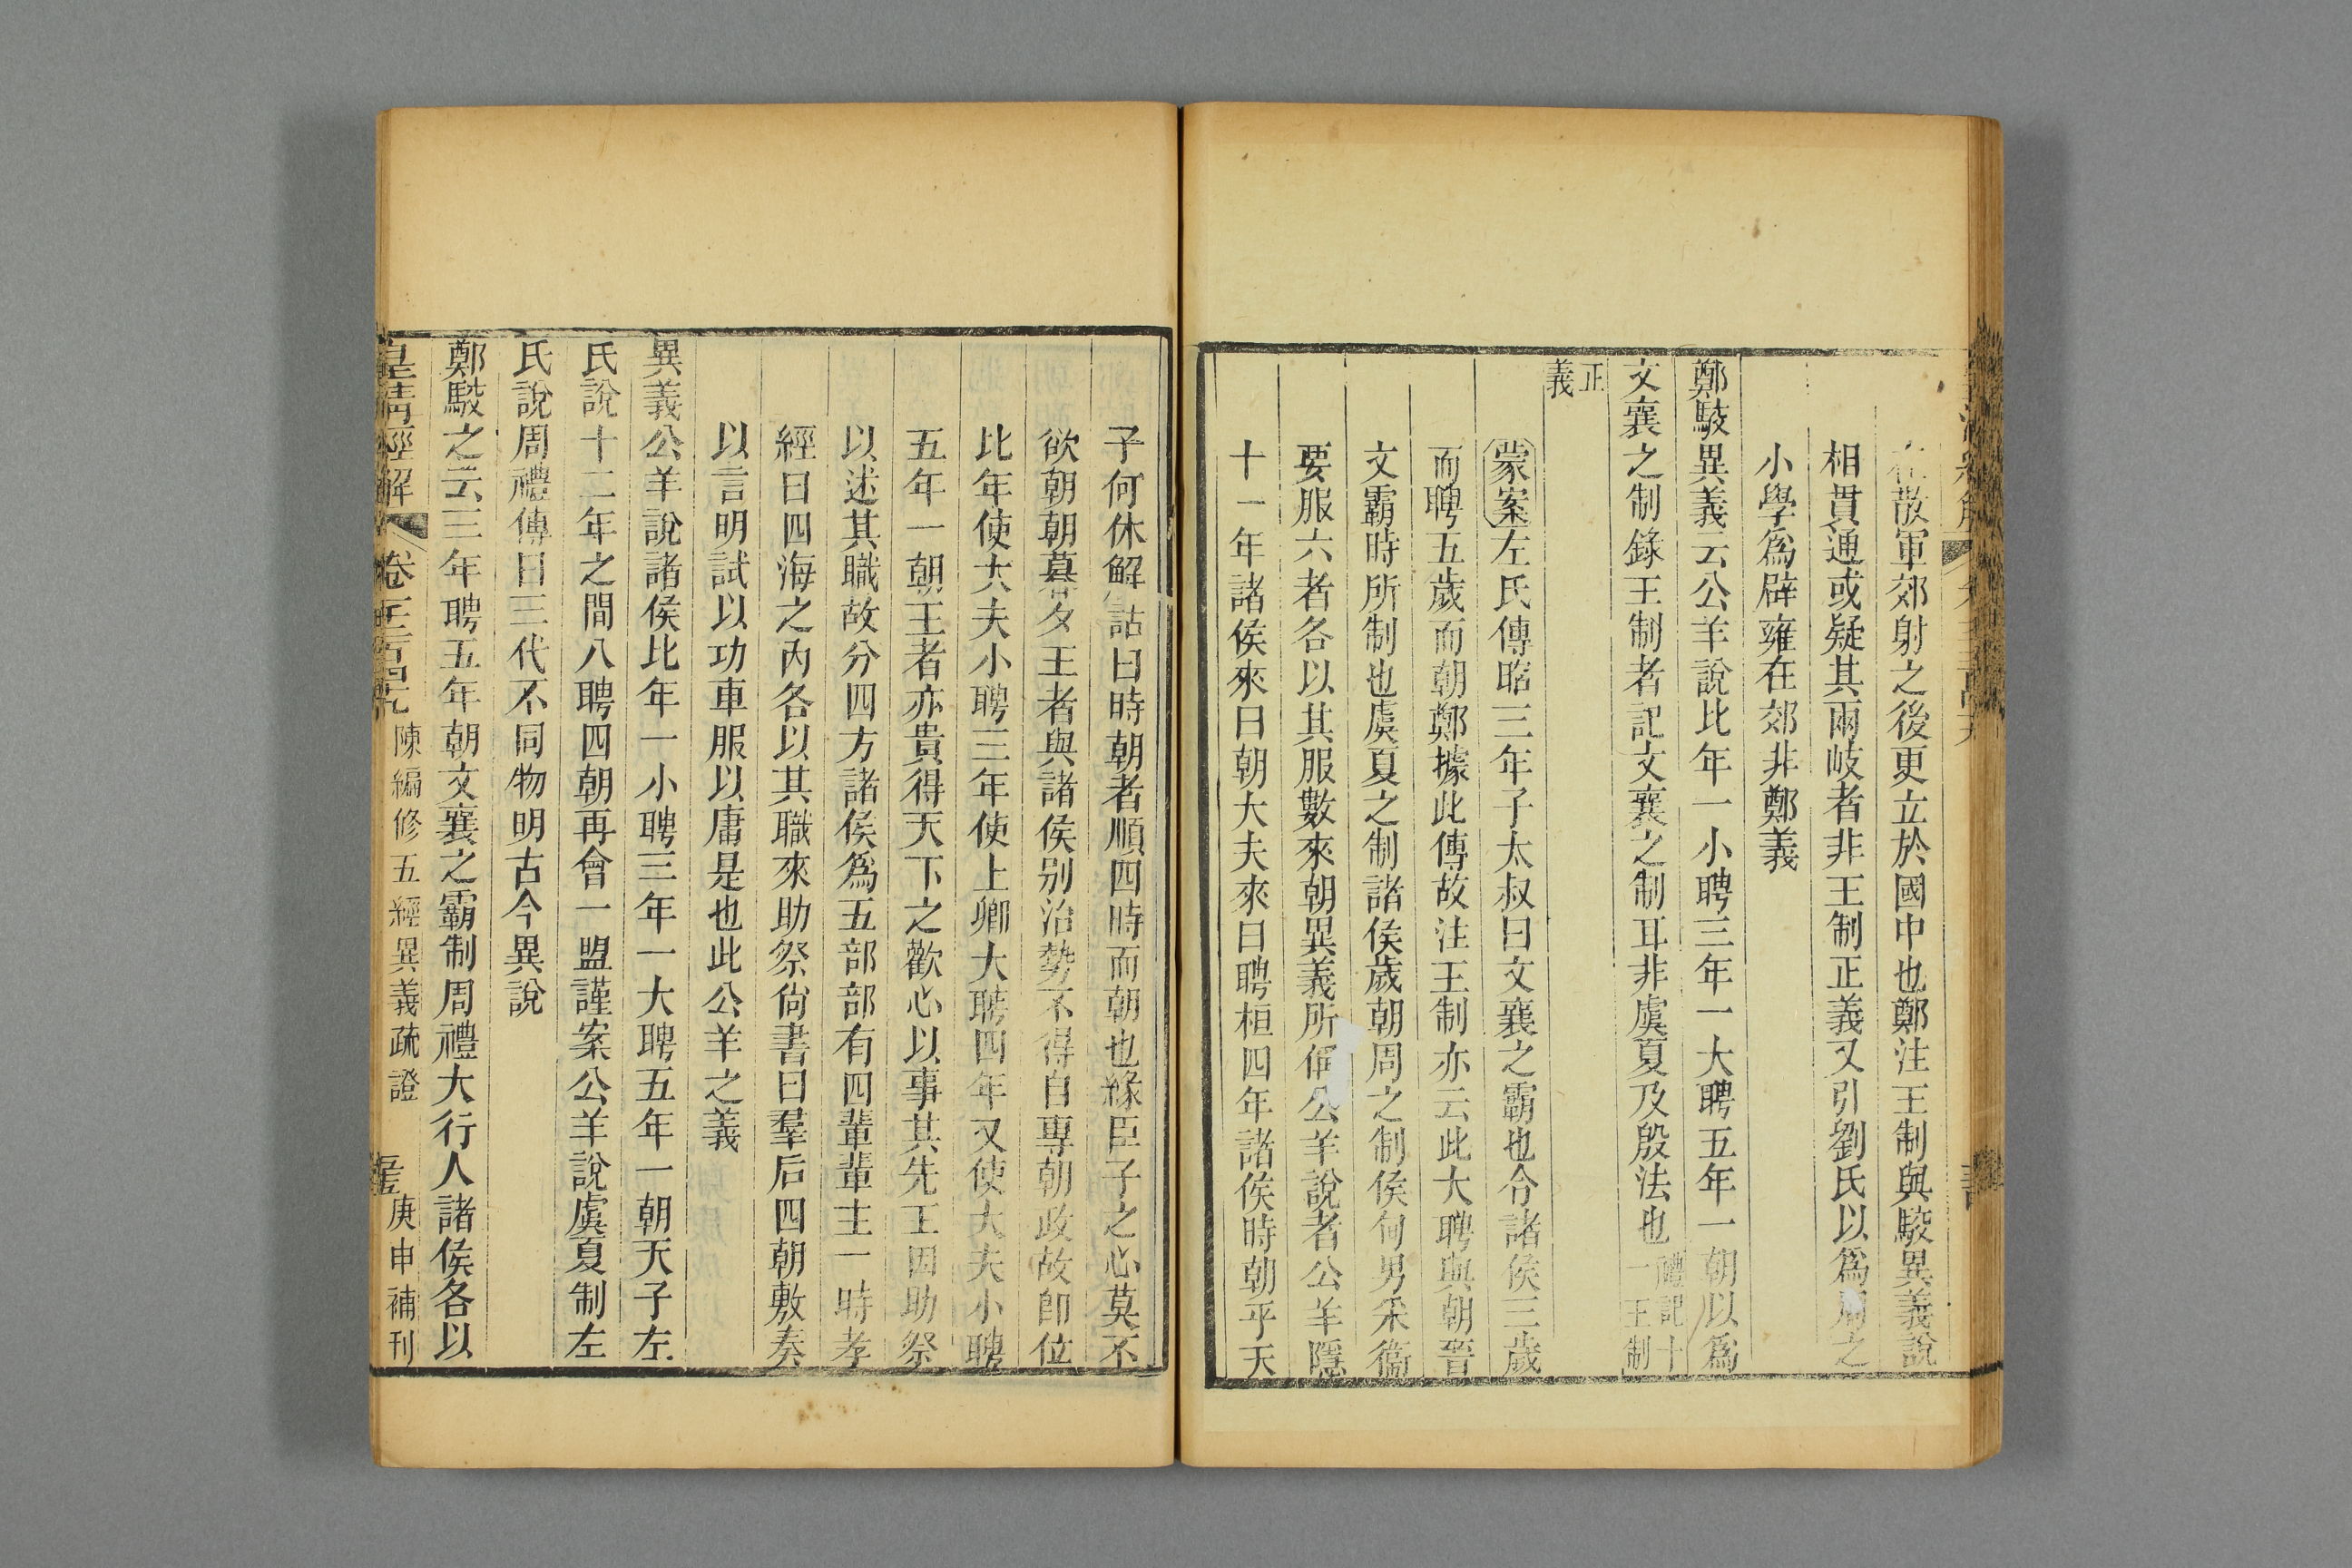 散軍郊射之後更立於國中也鄭注王制與駮異義說
相貫通或疑其兩岐者非王制正義又引劉氏以爲周之
小學爲辟雍在郊非鄭義
鄭駮異義云公羊說比年一小聘三年一大聘五年一朝以爲
文襄之制錄王制者記文襄之制耳非虞夏及殷法也禮記十一王制
正義
蒙案左氏傳昭三年子太叔曰文襄之霸也令諸侯三歲
而聘五歲而朝鄭據此傳故注王制亦云此大聘與朝晉
文霸時所制也虞夏之制諸侯歲朝周之制侯甸男采衞
要服六者各以其服數來朝異義所偁公羊說者公羊隱
十一年諸侯來曰朝大夫來曰聘桓四年諸侯時朝乎天
子何休解詁曰時朝者順四時而朝也緣臣子之心莫不
欲朝朝暮夕王者與諸侯别治勢不得自專朝政故卽位
比年使大夫小聘三年使上卿大聘四年又使大夫小聘
五年一朝王者亦貴得天下之歡心以事其先王因助祭
以述其職故分四方諸侯爲五部部有四輩輩主一時孝
經曰四海之內各以其職來助祭尙書曰羣后四朝敷奏
以言明試以功車服以庸是也此公羊之義
異義公羊說諸侯比年一小聘三年一大聘五年一朝天子左
氏說十二年之間八聘四朝再會一盟謹案公羊說虞夏制左
氏說周禮傳曰三代不同物明古今異說
鄭駮之云三年聘五年朝文襄之霸制周禮大行人諸侯各以
皇清經解 卷千二百四九 陳編修五經異義疏證 庚申補刊